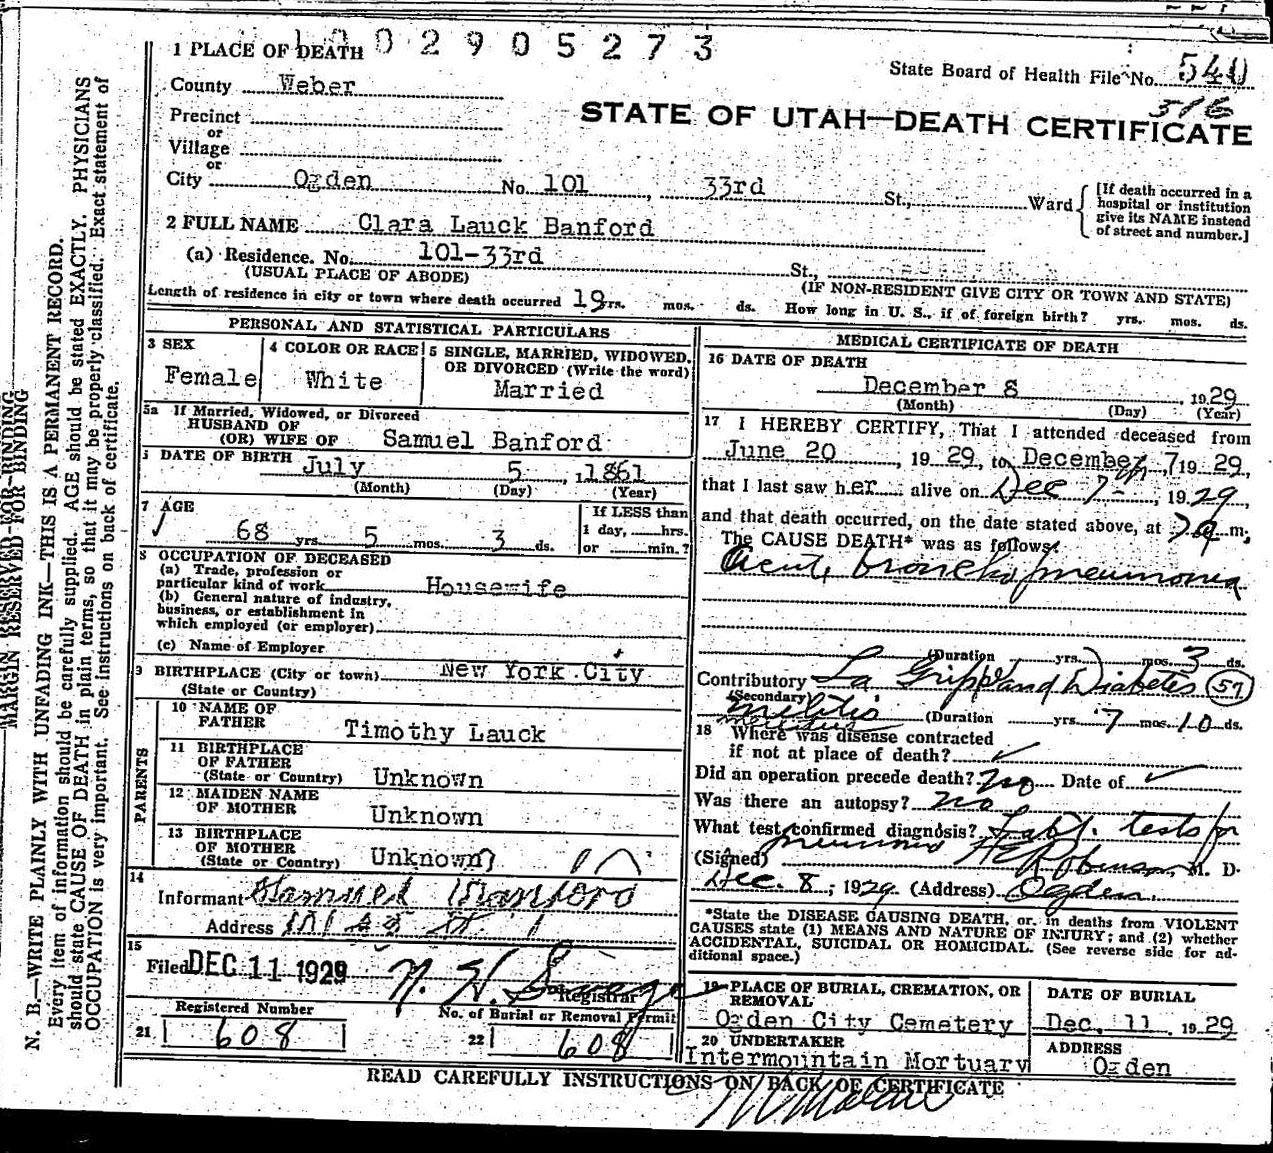 1002905273
1 PLACE OF DEATH
State Board of Health File No. 540
County Weber
516
STATE OF UTAH—DEATH CERTIFICATE
Precinct
or
Village
or
City Ogden No. 101, 33rd St., Ward
[If death occurred in a
hospital or institution
give its NAME instead
of street and number.]
2 FULL NAME Clara Lauck Banford
(a) Residence. No. 101-33rd St.,
(USUAL PLACE OF ABODE) (IF NON-RESIDENT GIVE CITY OR TOWN AND STATE)
Length of residence in city or town where death occurred 19 yrs. mos. ds. How long in U. S., if of foreign birth? yrs. mos. ds.
PERSONAL AND STATISTICAL PARTICULARS
3 SEX
Female
4 COLOR OR RACE
White
5 SINGLE, MARRIED, WIDOWED,
OR DIVORCED (Write the word)
Married
5a If Married, Widowed, or Divorced
HUSBAND OF
(OR) WIFE OF Samuel Banford
DATE OF BIRTH July 5, 1861
(Month) (Day) (Year)
7 AGE
68 yrs. 5 mos. 3 ds.
If LESS than
1 day, hrs.
or min.?
8 OCCUPATION OF DECEASED
(a) Trade, profession or
particular kind of work Housewife
(b) General nature of industry,
business, or establishment in
which employed (or employer)
(c) Name of Employer
9 BIRTHPLACE (City or town) New York City
(State or Country)
PARENTS
10 NAME OF
FATHER Timothy Lauck
11 BIRTHPLACE
OF FATHER
(State or Country) Unknown
12 MAIDEN NAME
OF MOTHER Unknown
13 BIRTHPLACE
OF MOTHER
(State or Country) Unknown
14
Informant Samuel Banford
Address
15
Filed DEC 11 1929
Registrar
Registered Number
21 608
No. of Burial or Removal Permit
22 608
MEDICAL CERTIFICATE OF DEATH
16 DATE OF DEATH
December 8, 1929
(Month) (Day) (Year)
17 I HEREBY CERTIFY, That I attended deceased from
June 20, 1929, to December 7, 1929,
that I last saw her alive on Dec 7th, 1929,
and that death occurred, on the date stated above, at 7 a m.
The CAUSE DEATH* was as follows:
Acute broncho pneumonia
(Duration yrs. mos. 3 ds.
Contributory La Gripp and Diabetes 57
(Secondary)
(Duration yrs. 7 mos. 10 ds.
18 Where was disease contracted
if not at place of death?
Did an operation precede death? no Date of
Was there an autopsy? no
What test confirmed diagnosis? Laby. tests for
pneumonia
(Signed) Robinson, M. D.
Dec. 8, 1929. (Address) Ogden.
*State the DISEASE CAUSING DEATH, or, in deaths from VIOLENT
CAUSES state (1) MEANS AND NATURE OF INJURY; and (2) whether
ACCIDENTAL, SUICIDAL OR HOMICIDAL. (See reverse side for ad-
ditional space.)
19 PLACE OF BURIAL, CREMATION, OR
REMOVAL
Ogden City Cemetery
DATE OF BURIAL
Dec. 11 1929
20 UNDERTAKER
Intermountain Mortuary
ADDRESS
Ogden
READ CAREFULLY INSTRUCTIONS ON BACK OF CERTIFICATE
MARGIN RESERVED FOR BINDING
N. B.—WRITE PLAINLY WITH UNFADING INK—THIS IS A PERMANENT RECORD.
Every item of information should be carefully supplied. AGE should be stated EXACTLY. PHYSICIANS
should state CAUSE OF DEATH in plain terms, so that it may be properly classified. Exact statement of
OCCUPATION is very important. See instructions on back of certificate.